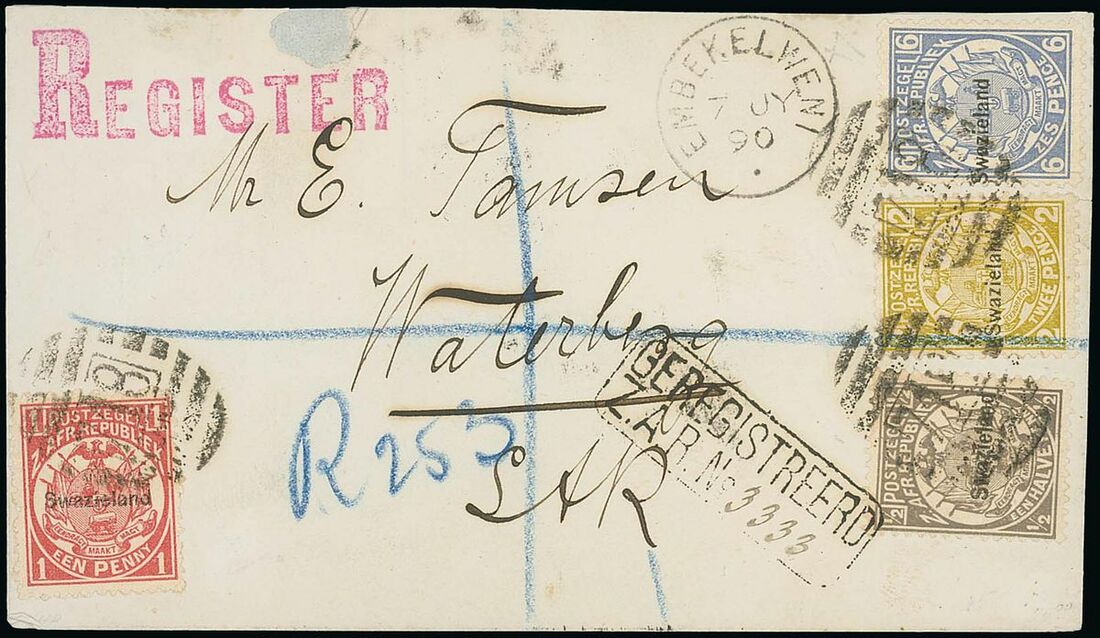 REGISTER
EMBEKELWENI
SY
90
Mr E. Tamsen
Waterberg
R 253
ZAR
GEREGISTREERD
Z.A.R. No 3333
6 POSTZEGEL 6
Z.AFR.REPUBLIEK
Swazieland
6 ZES PENCE 6
2 POSTZEGEL
Z.AFR.REPUBLIEK
Swazieland
TWEE PENCE 2
1/2 POSTZEGEL
Z.AFR.REPUBLIEK
Swazieland
EENHALVE 1/2
8
1 POSTZEGEL 1
Z.AFR.REPUBLIEK
Swazieland
EENDRAGT MAAKT MAGT
1 EEN PENNY 1